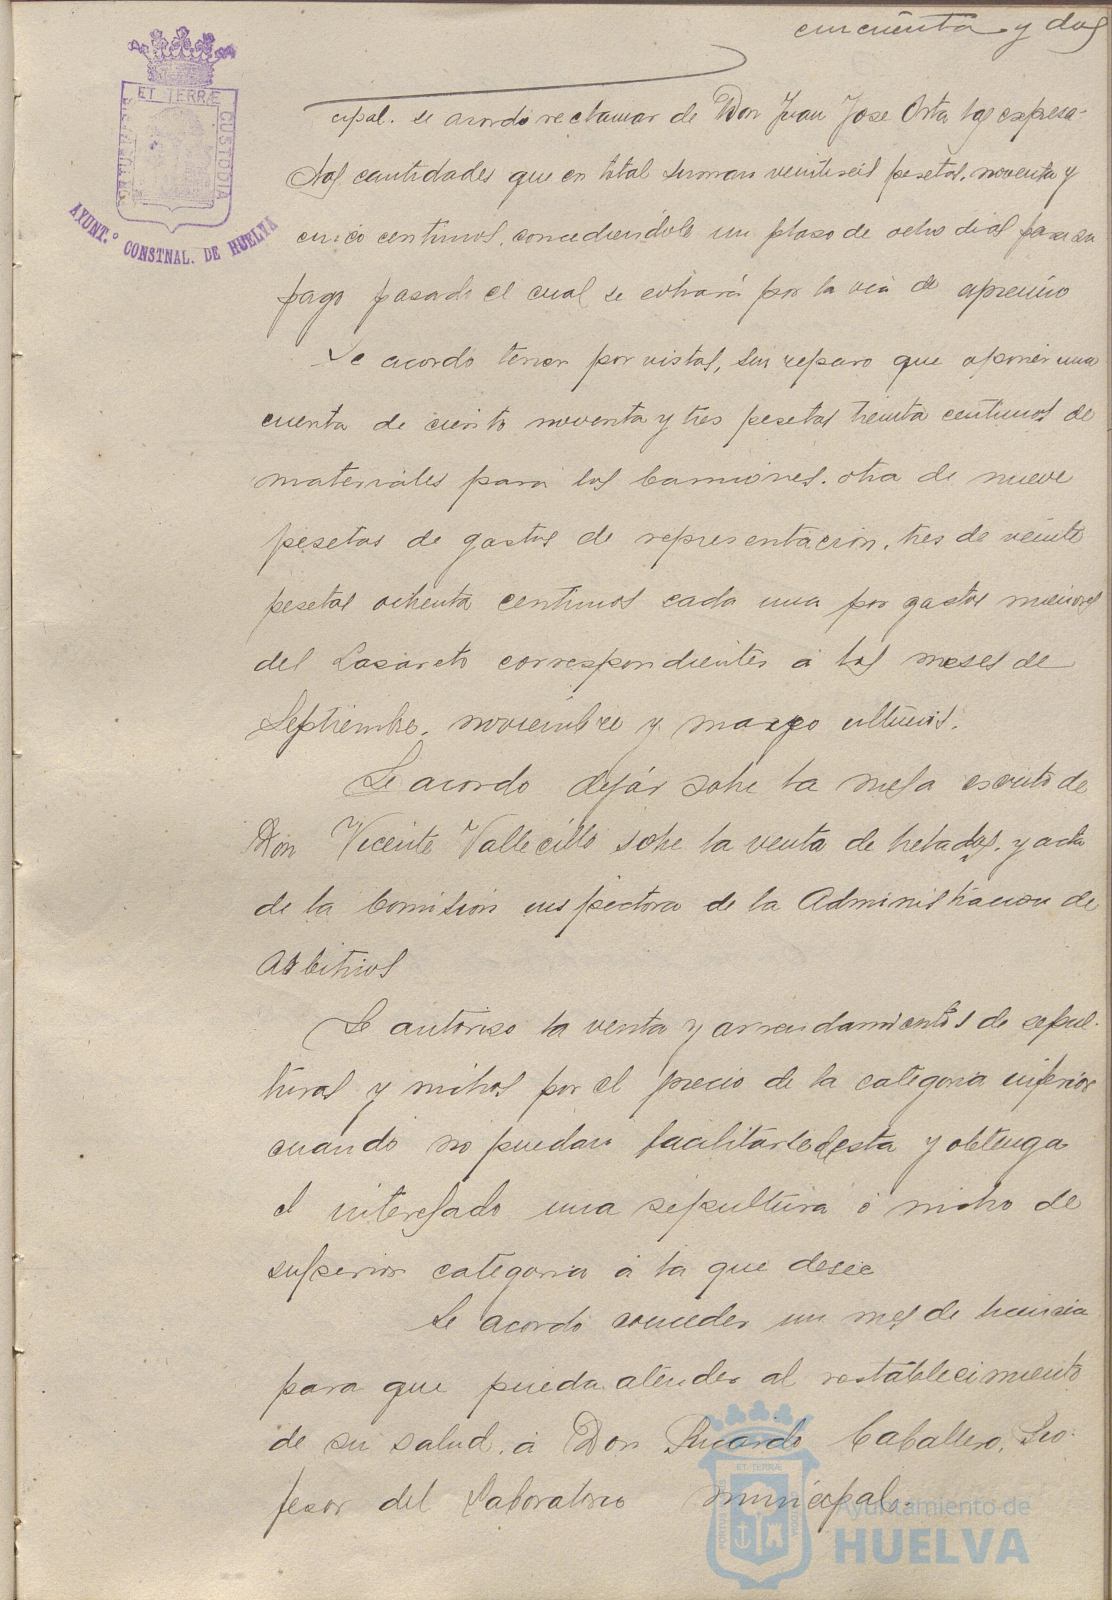 cincuenta y dos
ET TERRÆ CUSTODIA
AYUNT.º CONSTNAL. DE HUELVA
cipal. se acordó reclamar de Don Juan Jose Orta las expresa-
das cantidades que en total suman veintiseis pesetas, noventa y
cinco centimos, concediendole un plaso de ocho dias para su
pago pasado el cual se cobrará por la via de apremio
Se acordo tener por vistas, sin reparo que oponer una
cuenta de ciento noventa y tres pesetas treinta centimos de
materiales para los camiones. otra de nueve
pesetas de gastos de representacion, tres de veinte
pesetas ochenta centimos cada una por gastos menores
del Lasareto correspondientes á los meses de
Septiembre, noviembre y marzo ultimos.
Se acordo dejár sobre la mesa escrito de
Don Vicente Vallecillo sobre la venta de helados, y acta
de la Comision inspectora de la Administracion de
Arbitrios
Se autoriso la venta y arrendamientos de sepul-
turas y nichos por el precio de la categoria inferior
cuando no puedan facilitarle de esta y obtenga
el interesado una sepultura ó nicho de
superior categoria á la que desee
Se acordó conceder un mes de licencia
para que pueda atender al restablecimiento
de su salud, á Don Ricardo Caballero, Pro-
fesor del Laboratorio municipal.
ET TERRÆ
Ayuntamiento de
HUELVA